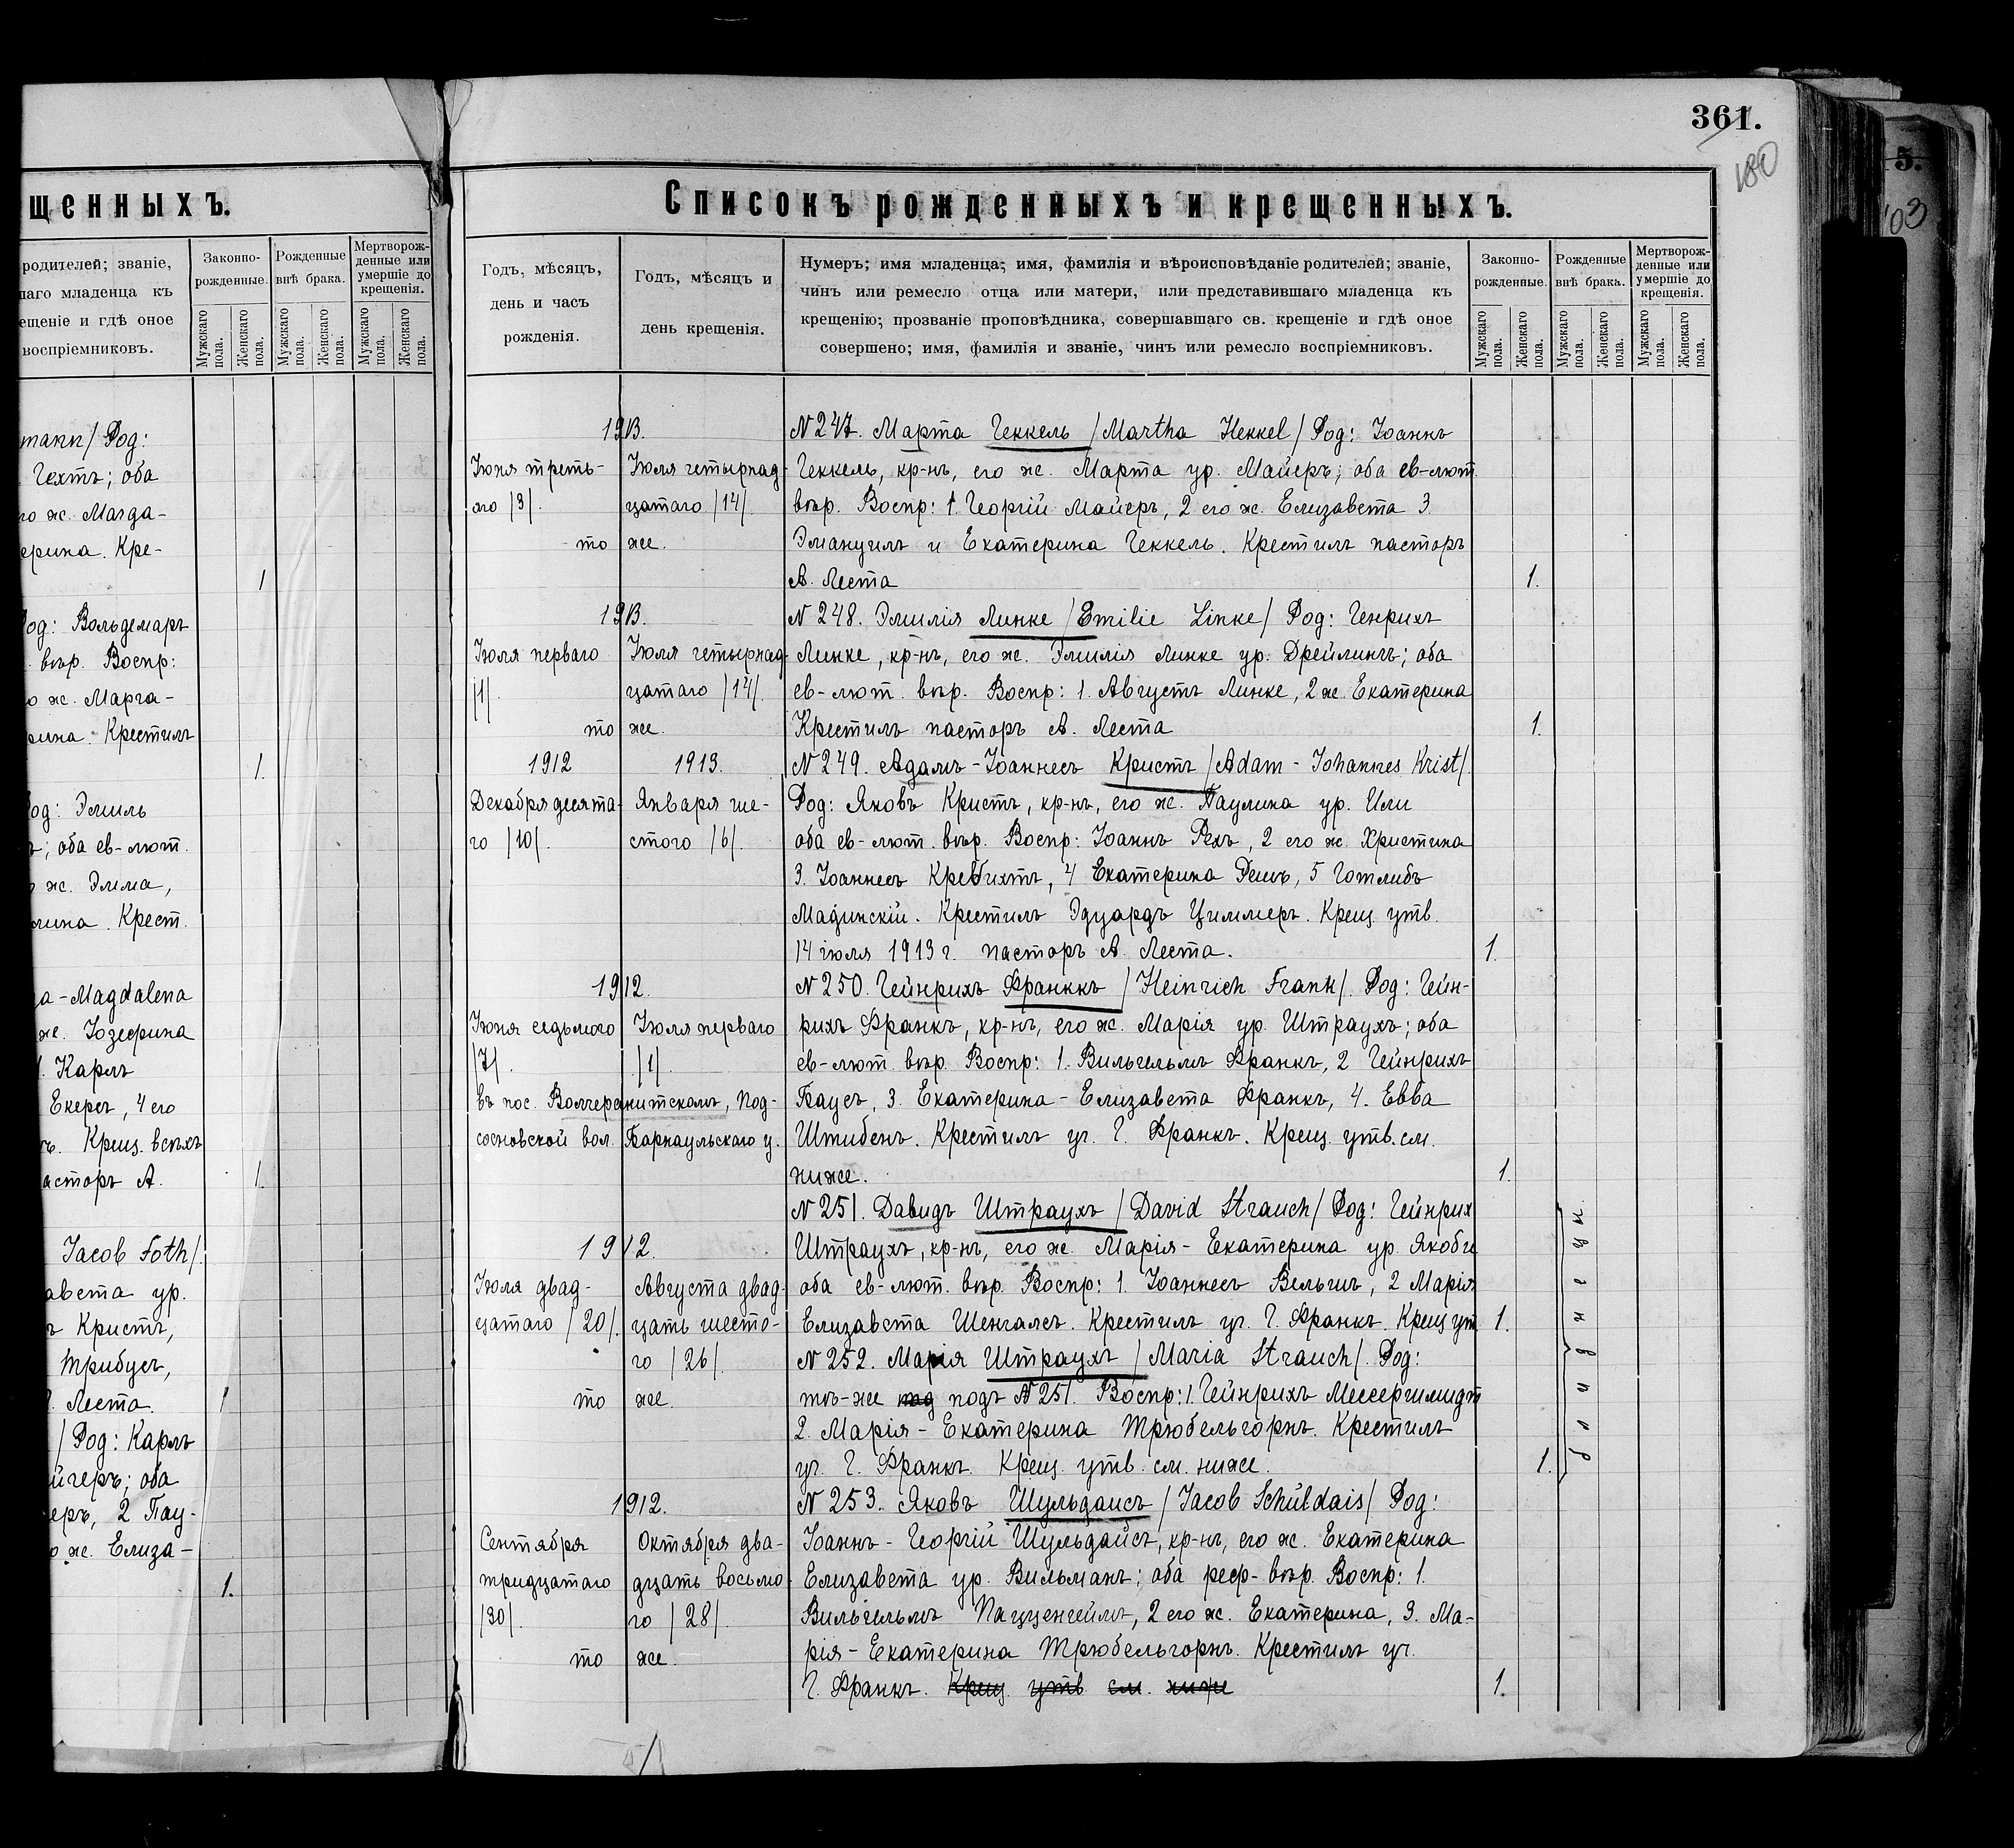 щенныхъ.
родителей; званіе,
шаго младенца къ
ещеніе и гдѣ оное
воспріемниковъ.
Законно-
рожденные.
Рожденные
внѣ брака.
Мертворож-
денные или
умершіе до
крещенія.
Мужскаго пола.
Женскаго пола.
Мужскаго пола.
Женскаго пола.
Мужскаго пола.
Женскаго пола.
mann/ Род:
Гехтъ; оба
го ж. Магда-
ерина. Кре-
1
Род: Вольдемаръ
вѣр. Воспр:
о ж. Марга-
рина. Крестилъ
1.
Род: Эмиль
ъ; оба ев-лют.
ж. Эмма,
лина. Крест.
да-Magdalena
же. Юзефина
1. Карлъ
Екерсъ, 4 его
ъ. Крещ. всѣхъ
асторъ А.
1.
Jacob Foth/.
авета ур.
ъ Кристъ,
Трибусъ,
Леста.
1
/ Род: Карлъ
йгеръ; оба
еръ, 2 Пау-
о ж. Елиза-
1.
361.
180
5.
03
Списокъ рожденныхъ и крещенныхъ.
Годъ, мѣсяцъ,
день и часъ
рожденія.
Годъ, мѣсяцъ и
день крещенія.
Нумеръ; имя младенца; имя, фамилія и вѣроисповѣданіе родителей; званіе,
чинъ или ремесло отца или матери, или представившаго младенца къ
крещенію; прозваніе проповѣдника, совершавшаго св. крещеніе и гдѣ оное
совершено; имя, фамилія и званіе, чинъ или ремесло воспріемниковъ.
Законно-
рожденные.
Рожденные
внѣ брака.
Мертворож-
денные или
умершіе до
крещенія.
Мужскаго пола.
Женскаго пола.
Мужскаго пола.
Женскаго пола.
Мужскаго пола.
Женскаго пола.
1913. N 247. Марта Геккель /Martha Hekkel/ Род: Іоаннъ
Іюня треть- Іюля четырнад- Геккель, кр-нъ, его ж. Марта ур. Майеръ; оба ев-лют.
яго /3/. цатаго /14/. вѣр. Воспр: 1. Георгій Майеръ, 2 его ж. Елизавета 3.
то же. Эмануилъ и Екатерина Геккель. Крестилъ пасторъ
А. Леста 1.
1913. N 248. Эмилія Линке /Emilie Linke/ Род: Генрихъ
Іюля перваго Іюля четырнад- Линке, кр-нъ, его ж. Эмилія Линке ур. Дрейлингъ; оба
/1/. цатаго /14/. ев-лют. вѣр. Воспр: 1. Августъ Линке, 2 ж. Екатерина
то же. Крестилъ пасторъ А. Леста 1.
1912 1913. N 249. Адамъ-Іоаннесъ Кристъ /Adam-Johannes Krist/.
Декабря десята- Января ше- Род: Яковъ Кристъ, кр-нъ, его ж. Паулина ур. Или
го /10/. стого /6/. оба ев-лют. вѣр. Воспр: Іоаннъ Рехъ, 2 его ж. Христина
3. Іоаннесъ Кребихтъ, 4 Екатерина Решъ, 5 Готлибъ
Мадинскій. Крестилъ Эдуардъ Циммеръ. Крещ. утв.
14 іюля 1913 г. пасторъ А. Леста. 1.
1912. N 250. Гейнрихъ Франккъ /Heinrich Frank/. Род: Гейн-
Іюня седьмого Іюля перваго рихъ Франкъ, кр-нъ, его ж. Марія ур. Штраухъ; оба
/7/. /1/. ев-лют. вѣр. Воспр: 1. Вильгельмъ Франкъ, 2 Гейнрихъ
въ пос. Волчеракитскомъ, Под- Баусъ, 3. Екатерина-Елизавета Франкъ, 4. Евва
сосновской вол. Барнаульскаго у. Штибенъ. Крестилъ уч. Г. Франкъ. Крещ. утв. см.
ниже. 1.
N 251. Давидъ Штраухъ /David Strauch/ Род: Гейнрих
1912. Штраухъ, кр-нъ, его ж. Марія-Екатерина ур. Якоби
Іюля двад- Августа двад- оба ев-лют. вѣр. Воспр: 1. Іоаннесъ Вельгшъ, 2 Марія
цатаго /20/. цать шесто- Елизавета Шенгалсъ. Крестилъ уч. Г. Франкъ. Крещ ут 1.
го /26/. N 252. Марія Штраухъ /Maria Strauch/. Род:
то же. тѣ-же под подъ N 251. Воспр: 1. Гейнрихъ Мессершмидт
2. Марія-Екатерина Трюбельгорнъ. Крестилъ
уч. Г. Франкъ. Крещ. утв. см. ниже. 1.
близнецы
1912. N 253. Яковъ Шульдаисъ /Jacob Schüldais/ Род:
Сентября Октября два- Іоаннъ-Георгій Шульдайсъ, кр-нъ, его ж. Екатерина
тридцатаго дцать восьмо- Елизавета ур. Вильманъ; оба реф-вѣр. Воспр: 1.
/30/. го /28/. Вильгельмъ Пацценгеймъ, 2 его ж. Екатерина, 3. Ма-
то же. рія-Екатерина Трюбельгорнъ. Крестилъ уч.
Г. Франкъ. Крещ. утв см. ниже 1.